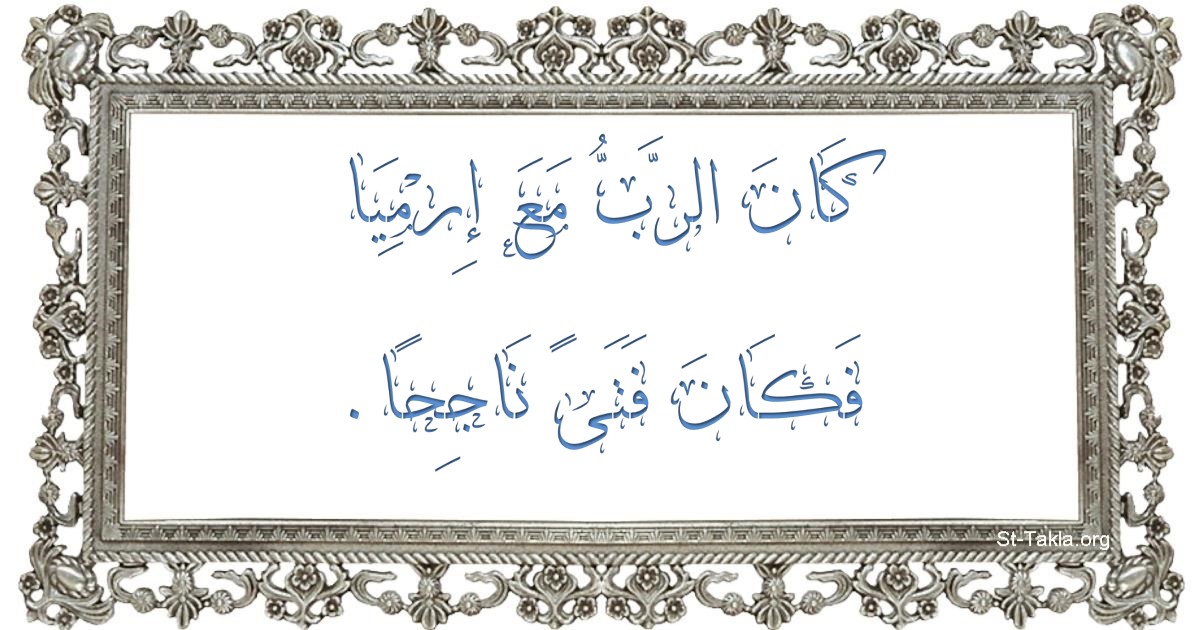 كَانَ الرَّبُّ مَعَ إِرْمِيَا
فَكَانَ فَتَىً نَاجِحًا.
St-Takla.org